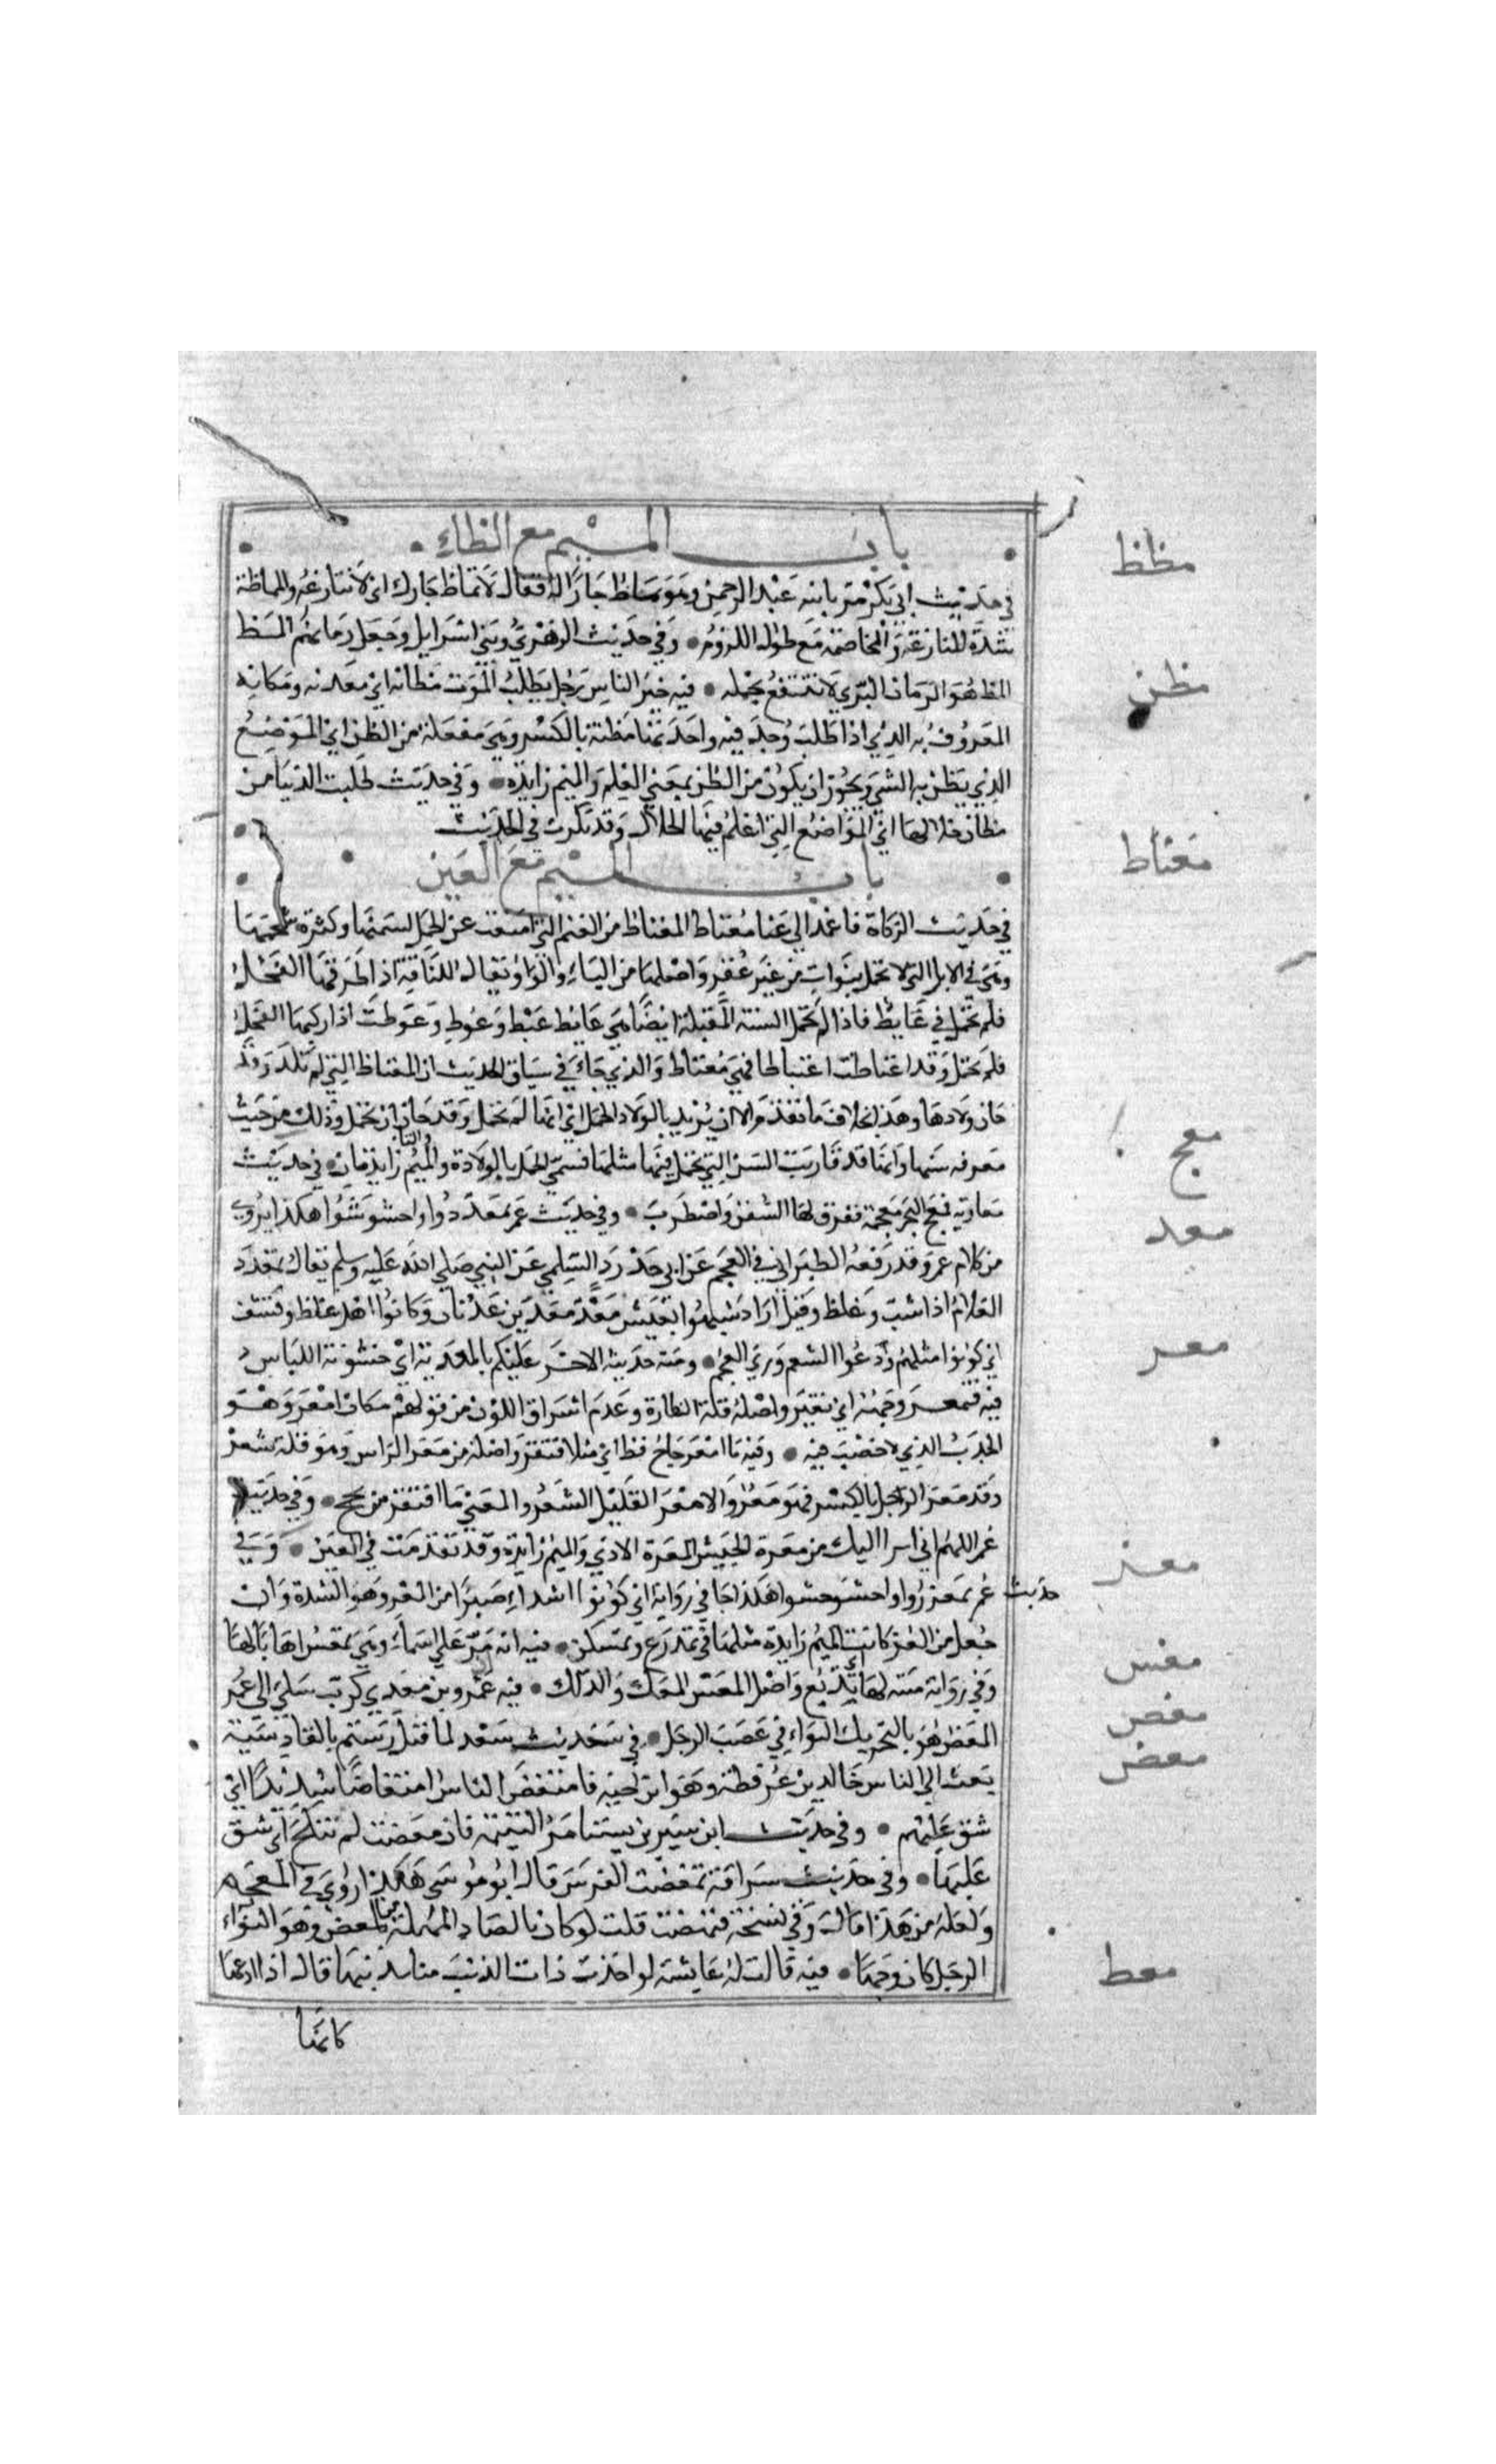 باب الميم مع الظاء
مظظ
في حديث ابي بكر مر بابنه عبد الرحمن وهو يماظ جارا له فقال لا تماظ جارك اي لا تنازعه والمماظة
شدة المنازعة والمخاصمة مع طول اللزوم وفي حديث الزهري وبني اسرايل وجعل رمانهم المظ
المظ هو الرمان البري لا ينتفع بحمله فيه خير الناس رجل يطلب الموت مظانه اي معدنه ومكانه
مظن
المعروف به الذي اذا طلب وجد فيه واحدتها مظنة بالكسر وهي مفعلة من الظن اي الموضع
الذي يظن به الشي ويجوز ان يكون من الظن بمعني العلم والميم زايدة وفي حديث طلبت الدنيا من
مظان حلالها اي المواضع التي اعلم فيها الحلال وقد تكرت في الحديث
باب الميم مع العين
معتاط
في حديث الزكاة فاعمد الي عناق معتاط المعتاط من الغنم التي امتنعت عن الحمل لسمنها وكثرة شحمها
وهي في الابل التي لا تحمل سنوات من غير عقر واصلها من الياء والواو يقال للناقة اذا طرقها الفحل
فلم تحمل في عايط فاذا لم تحمل السنة المقبلة ايضا هي عايط عيط وعوط وعوطت اذا ركبها الفحل
فلم تحمل وقد اعتاطت اعتياطا فهي معتاط والذي جاء في سياق الحديث ان المعتاط التي لم تلد وقد
حان ولادها وهذا بخلاف ما تقدم الا ان يريد بالولاد الحمل اي انها لم تحمل وقد حان ان تحمل وذلك من حيث
معرفة سنها وانها قد قاربت السن التي تحمل فيها مثلها فسمي الحمل بالولادة والميم والتا زايدتان في حديث
معج
معاوية فمعج البحر معجة تفرق لها السفن واضطرب وفي حديث عمر تمعددوا واخشوشنوا هكذا يروي
معد
من كلام عمر وقد رفعه الطبراني في المعجم عن ابي حدرد السلمي عن النبي صلي الله عليه وسلم يقال تمعدد
الغلام اذا شب وغلظ وقيل اراد تشبهوا بعيش معد معد بن عدنان وكانوا اهل غلظ وقشف
اي كونوا مثلهم ودعوا التنعم وزي العجم ومنه حديثه الاخر عليكم بالمعدية اي خشونة اللباس
معر
فيه فتمعر وجهه اي تغير واصله قلة النظارة وعدم اشراق اللون من قولهم مكان امعر وهو
الجدب الذي لا خصب فيه وفيه ما امعر حاج قط اي مثلا افتقر واصله من معر الراس وهو قلة شعر
وقد معر الرجل بالكسر فهو معر والامعر القليل الشعر والمعني ما افتقر من يحج وفي حديث
عمر اللهم اني ابرا اليك من معرة الجيش المعرة الاذي والميم زايدة وقد تقدمت في العين وفي
معز
حديث عمر تمعززوا واخشوشنوا هكذا جا في رواية اي كونوا اشداء صبرا من المعز وهو الشدة وان
جعل من العز كانت الميم زايدة مثلها في تمدرع وتمسكن فيه انه مر علي اسماء وهي تمعس اهابا لها
معس
وفي رواية منية لها اي تدبغ واصل المعس المعك والدلك فيه عمرو بن معدي كرب شكي الي عمر
معص
المعص هو بالتحريك التواء في عصب الرجل في حديث سعد لما قتل رستم بالقادسية
معض
بعث الي الناس خالد بن عرفطة وهو ابن اخته فامتعض الناس امتعاضا شديدا اي
شق عليهم وفي حديث ابن سيرين تستامر اليتيمة فان معضت لم تنكح اي شق
عليها وفي حديث سراقة تمعضت الفرس قال ابو موسي هكذا روي في المعجم
ولعله من هذا قال وفي نسخة فنهضت قلت لو كان بالصاد المهملة من المعص وهو التواء
الرجل لكان وجها فيه قالت له عايشة لو اخذت ذات الذنب منا بذنبها قال اذا ادعها
معط
كانها